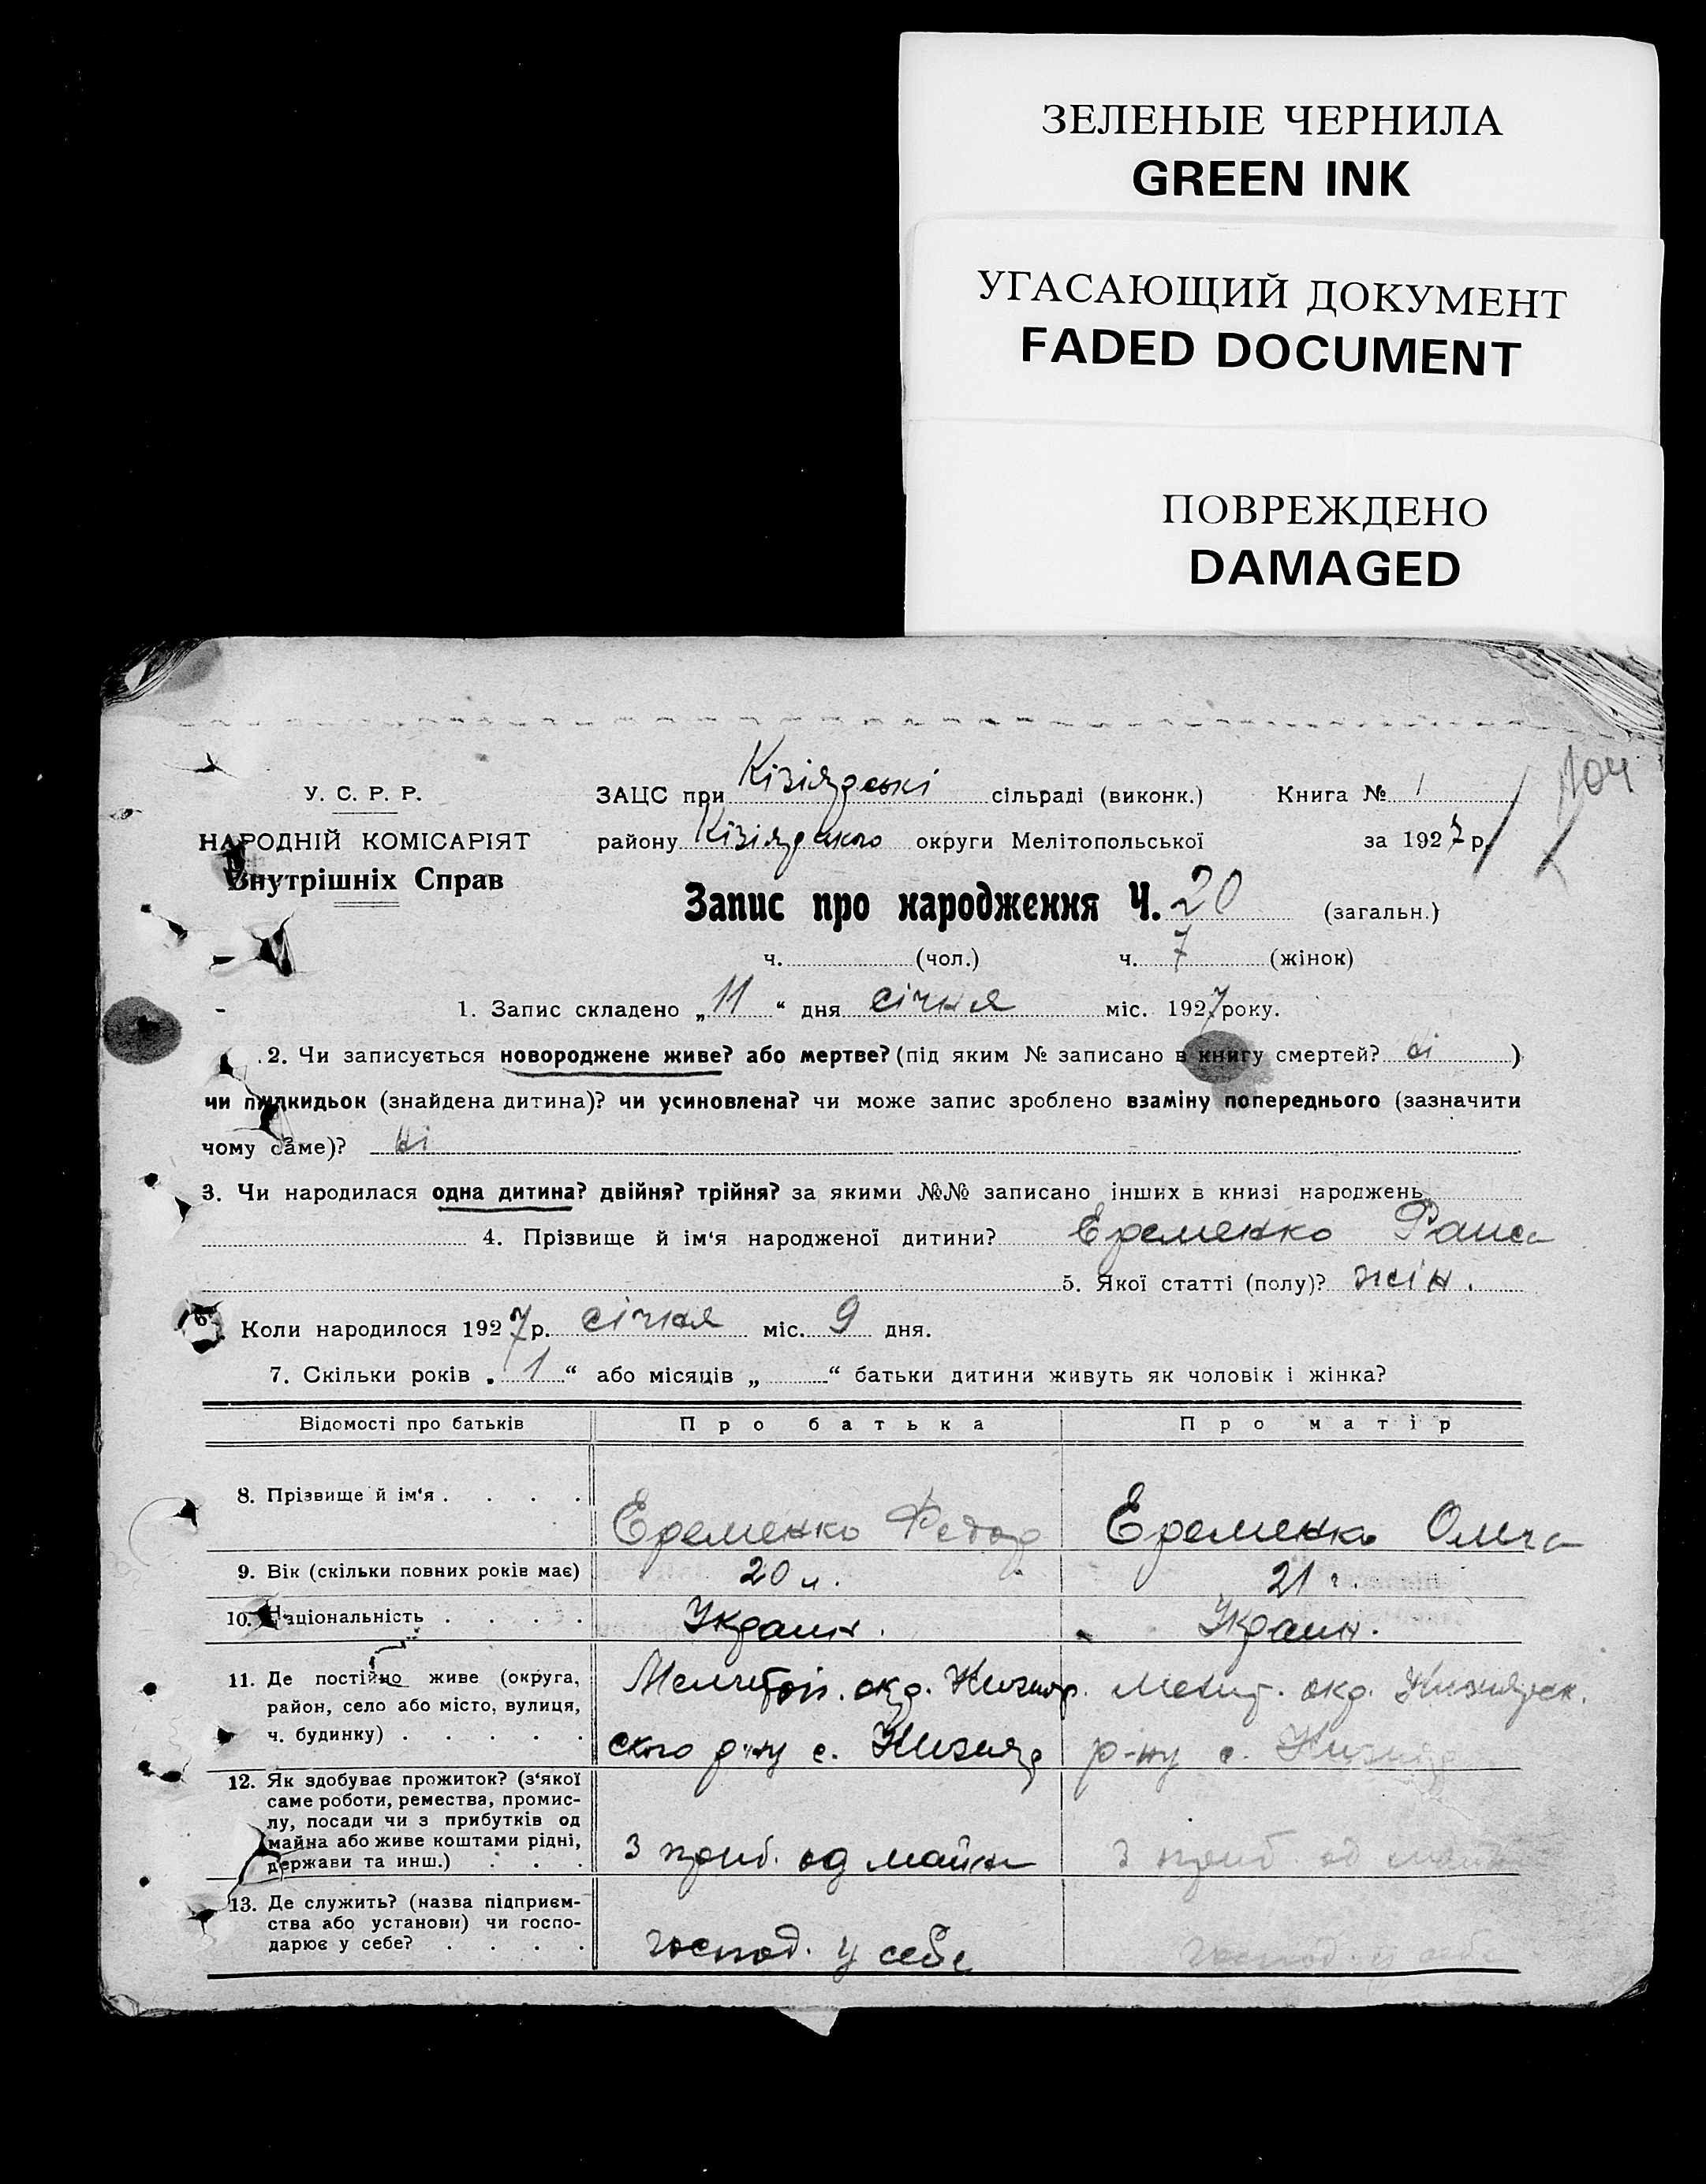 ЗЕЛЕНЫЕ ЧЕРНИЛА
GREEN INK
УГАСАЮЩИЙ ДОКУМЕНТ
FADED DOCUMENT
ПОВРЕЖДЕНО
DAMAGED
104
У. С. Р. Р.
ЗАЦС при Кізіярські сільраді (виконк.) Книга № 1
НАРОДНІЙ КОМІСАРІЯТ
району Кізіярського округи Мелітопольської за 1927 р.
Внутрішніх Справ
Запис про народження Ч. 20 (загальн.)
ч. (чол.) ч. 7 (жінок)
1. Запис складено „11“ дня січня міс. 1927 року.
2. Чи записується новороджене живе? або мертве? (під яким № записано в книгу смертей? ні )
чи підкидьок (знайдена дитина)? чи усиновлена? чи може запис зроблено взаміну попереднього (зазначити
чому саме)? ні
3. Чи народилася одна дитина? двійня? трійня? за якими №№ записано інших в книзі народжень
4. Прізвище й ім'я народженої дитини? Еременко Раиса
5. Якої статті (полу)? жін.
6. Коли народилося 1927 р. січня міс. 9 дня.
7. Скільки років „1“ або місяців „ “ батьки дитини живуть як чоловік і жінка?
Відомості про батьків Про батька Про матір
8. Прізвище й ім'я . . . . Еременко Федор Еременко Ольга
9. Вік (скільки повних років має) 20 л. 21 г.
10. Національність . . . . Украин. Украин.
11. Де постійно живе (округа,
район, село або місто, вулиця,
ч. будинку) . . . . .
Мелитоп. окр. Кизияр.
ского р-ну с. Кизияр
Мелит. окр. Кизиярск.
р-ну с. Кизияр
12. Як здобуває прожиток? (з'якої
саме роботи, ремества, промис-
лу, посади чи з прибутків од
майна або живе коштами рідні,
держави та инш.) . . .
З приб. од майна
З приб. од майна
13. Де служить? (назва підприєм-
ства або установи) чи госпо-
дарює у себе? . . . .
господ. у себе
господ. у себе